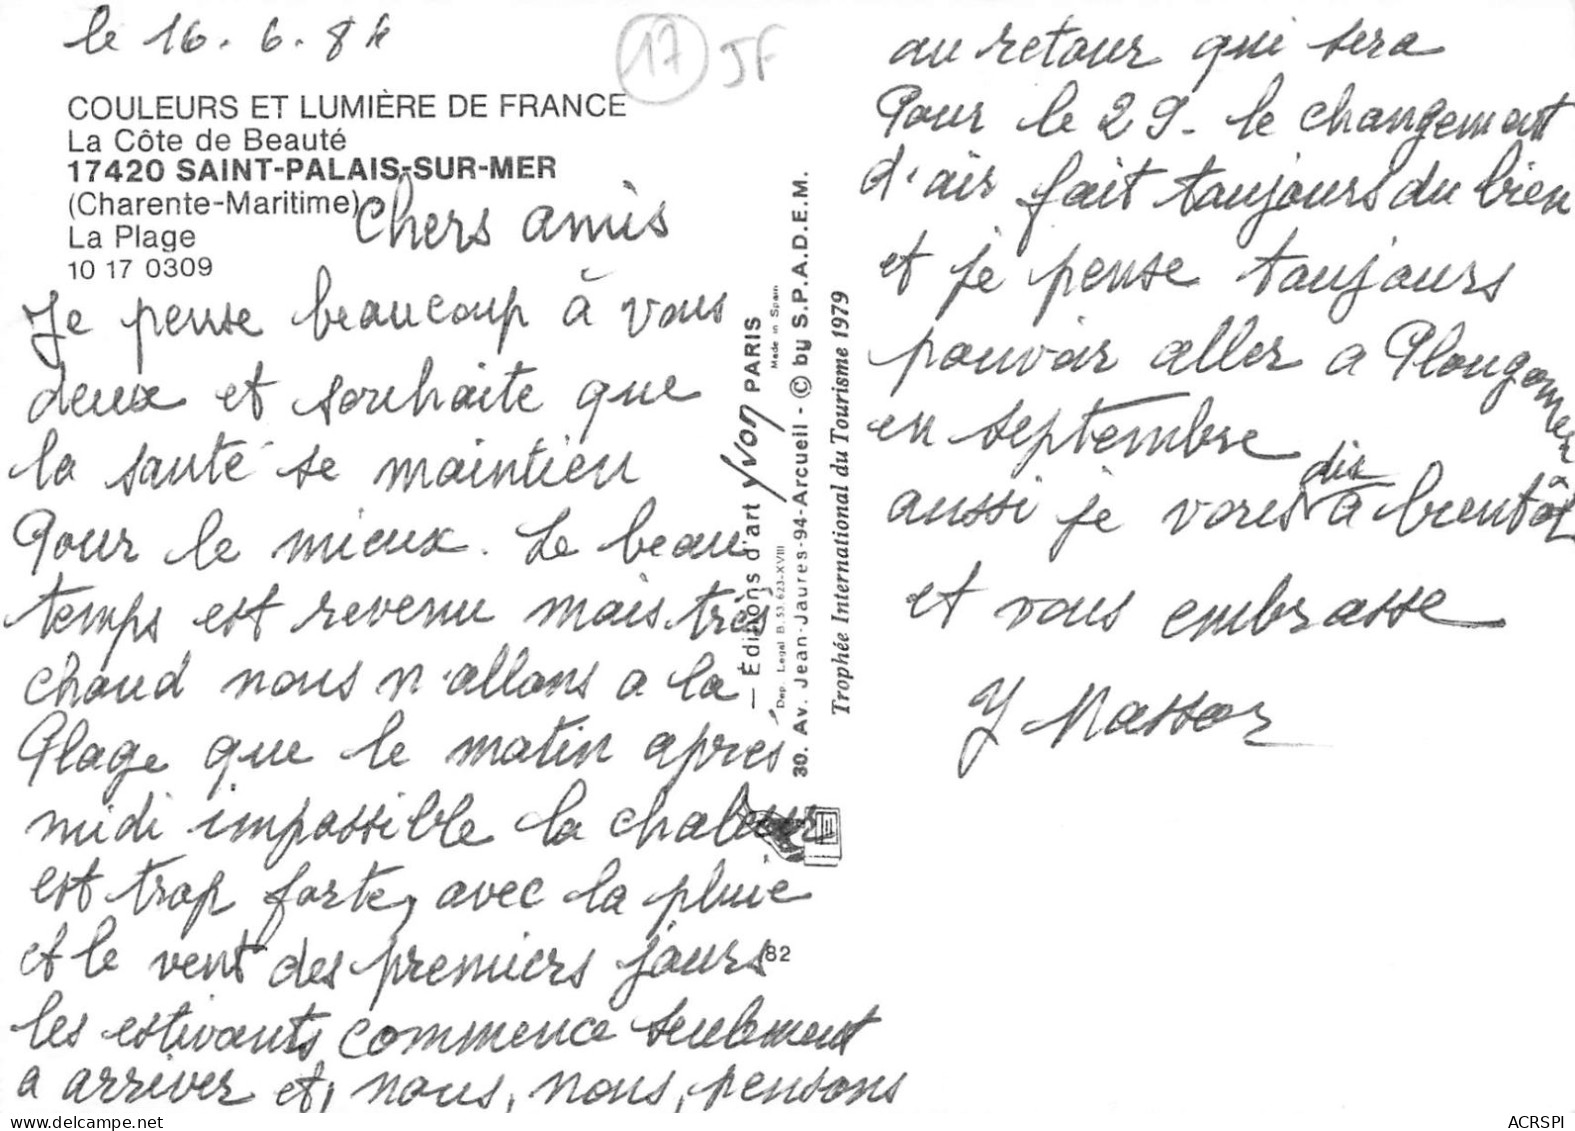 le 16.6.84
17 JF
COULEURS ET LUMIÈRE DE FRANCE
La Côte de Beauté
17420 SAINT-PALAIS-SUR-MER
(Charente-Maritime)
La Plage
10 17 0309
Chers amis
Je pense beaucoup à vous
deux et souhaite que
la santé se maintien
Pour le mieux. Le beau
temps est revenu mais très
chaud nous n'allons a la
Plage que le matin apres
midi impossible la chaleur
est trop forte, avec la pluie
et le vent des premiers jours
les estivants commence seulement
a arriver et, nous, nous, pensons
au retour qui sera
Pour le 29- le changement
d'air fait toujours du bien
et je pense toujours
pouvoir aller a Plougomer
en septembre
aussi je vous dis a bientôt
et vous embrasse
Y Massor
— Éditions d'art Yvon PARIS
Made in Spain
Dep. Legal B. 53.623-XVIII
30. Av. Jean-Jaures-94-Arcueil - © by S.P.A.D.E.M.
Trophée International du Tourisme 1979
82
ACRSPI